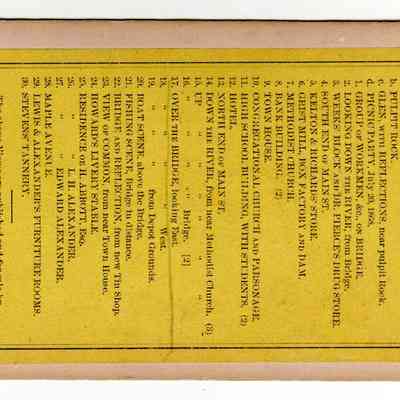 b. PULPIT ROCK.
c. GLEN, WITH REFLECTIONS, near pulpit Rock.
d. PICNIC PARTY, July 20, 1868.
1. GROUP OF WORKMEN, &c., ON BRIDGE.
2. LOOKING DOWN THE RIVER, from Bridge.
3. WEEKS' BLOCK, AND PIERCE'S DRUG STORE.
4. SOUTH END OF MAIN ST.
5. KELTON & RICHARDS' STORE.
6. GRIST MILL, BOX FACTORY AND DAM.
7. METHODIST CHURCH.
8. BANK BUILDING. (2)
9. TOWN HOUSE.
10. CONGREGATIONAL CHURCH AND PARSONAGE.
11. HIGH SCHOOL BUILDING, WITH STUDENTS. (2)
12. HOTEL.
13. NORTH END OF MAIN ST.
14. DOWN THE RIVER, from near Methodist Church. (3)
15. UP " " " " "
16. " " " Bridge. [4]
17. OVER THE BRIDGE, looking East.
18. " " " West.
19. " " from Depot Grounds.
20. BOAT SCENE above the Bridge.
21. FISHING SCENE, Bridge in distance.
22. BRIDGE AND REFLECTION, from new Tin Shop.
23. VIEW OF COMMON, from near Town House.
24. HOWARD'S LIVERY STABLE.
25. RESIDENCE OF H. ABBOTT, Esq.
26. " " L. H. ALEXANDER.
27. " " EDWARD ALEXANDER.
28. MAPLE AVENUE.
29. LEWIS & ALEXANDER'S FURNITURE ROOMS.
30. STEVENS' TANNERY.